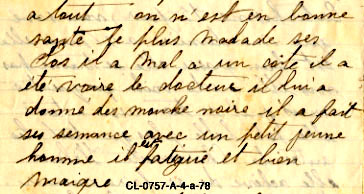 a tout on n'est en bonne
santé le plus malade ses
clos il a mal a un coté il a
été voire le docteur il lui a
donné des mouche noire il a fait
ses semance avec un petit jeune
homme il est fatigué et bien
maigre
CL-0757-A-4-a-78